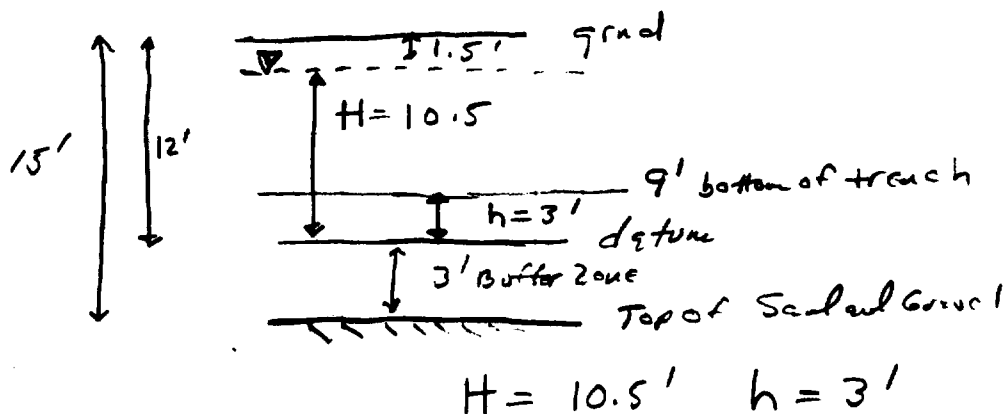 grnd
1.5'
H = 10.5
15'
12'
9' bottom of trench
h = 3'
datum
3' Buffer Zone
Top of Sand and Gravel
H = 10.5' h = 3'